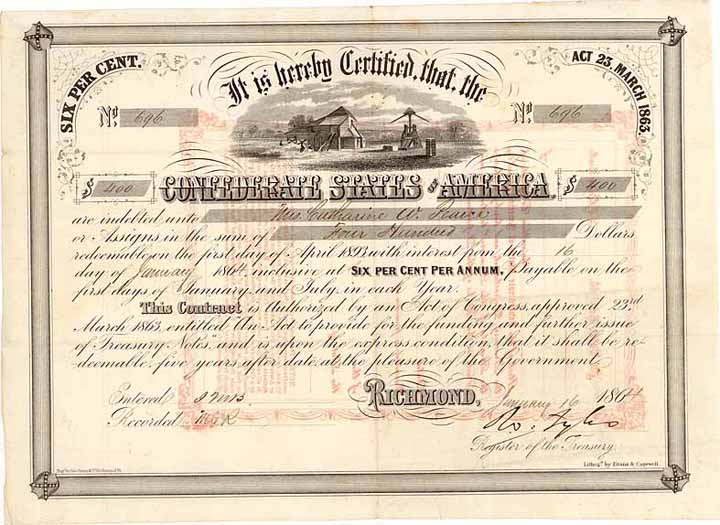 It is hereby Certified, that, the
SIX PER CENT.
ACT 23, MARCH 1863.
No. 696
No. 696
$ 400
CONFEDERATE STATES OF AMERICA,
$ 400
are indebted unto Mrs. Catharine W.
or Assigns in the sum of Four Hundred Dollars
redeemable on the first day of April 1893 with interest from the 16
day of January 1864 inclusive at SIX PER CENT PER ANNUM, Payable on the
first days of January and July, in each Year.
This Contract is Authorized by an Act of Congress, approved 23rd
March 1863, entitled "An Act to provide for the funding and further issue
of Treasury Notes," and is upon the express condition, that it shall be re-
deemable, five years, after date, at, the pleasure of the Government.
Entered
Recorded
RICHMOND, January 16 1864
R. Tyler
Register of the Treasury.
Lithog'd by Evans & Cogswell